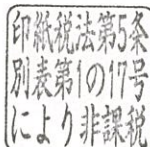 印紙税法第5条
別表第1の17号
により非課税